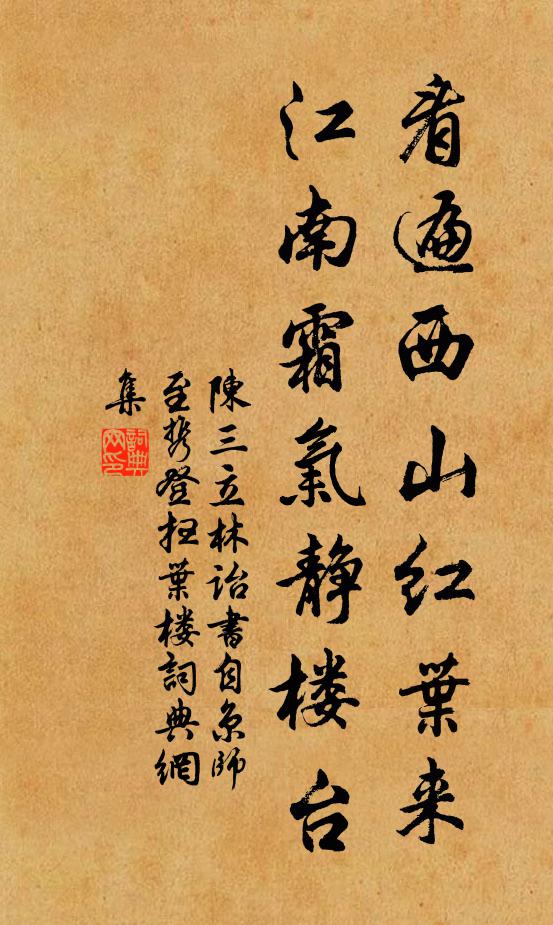 看遍西山红葉来
江南霜氣静楼台
陳三立林詒書自京師
至携登扫葉楼詞典網
集
詞典
网印